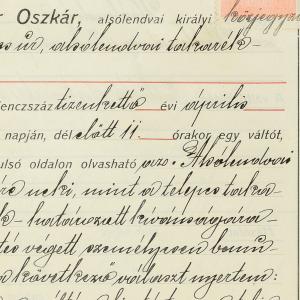 r Oszkár, alsólendvai királyi közjegyző
es úr, alsólendvai takarék-
lenczszáz tizenkettő évi április
napján, dél előtt 11 órakor egy váltót,
ulsó oldalon olvasható azo. Alsólendvai
re neki, mint a telepes taka
k- határozott kívánságára
tés végett személyesen bemu
a következő választ nyertem: